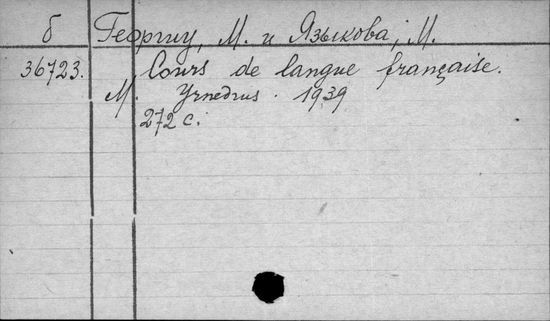 б Георгиу, М. и Языкова, М.
36723. Cours de langue française.
М. Учпедгиз. 1939
272 с.